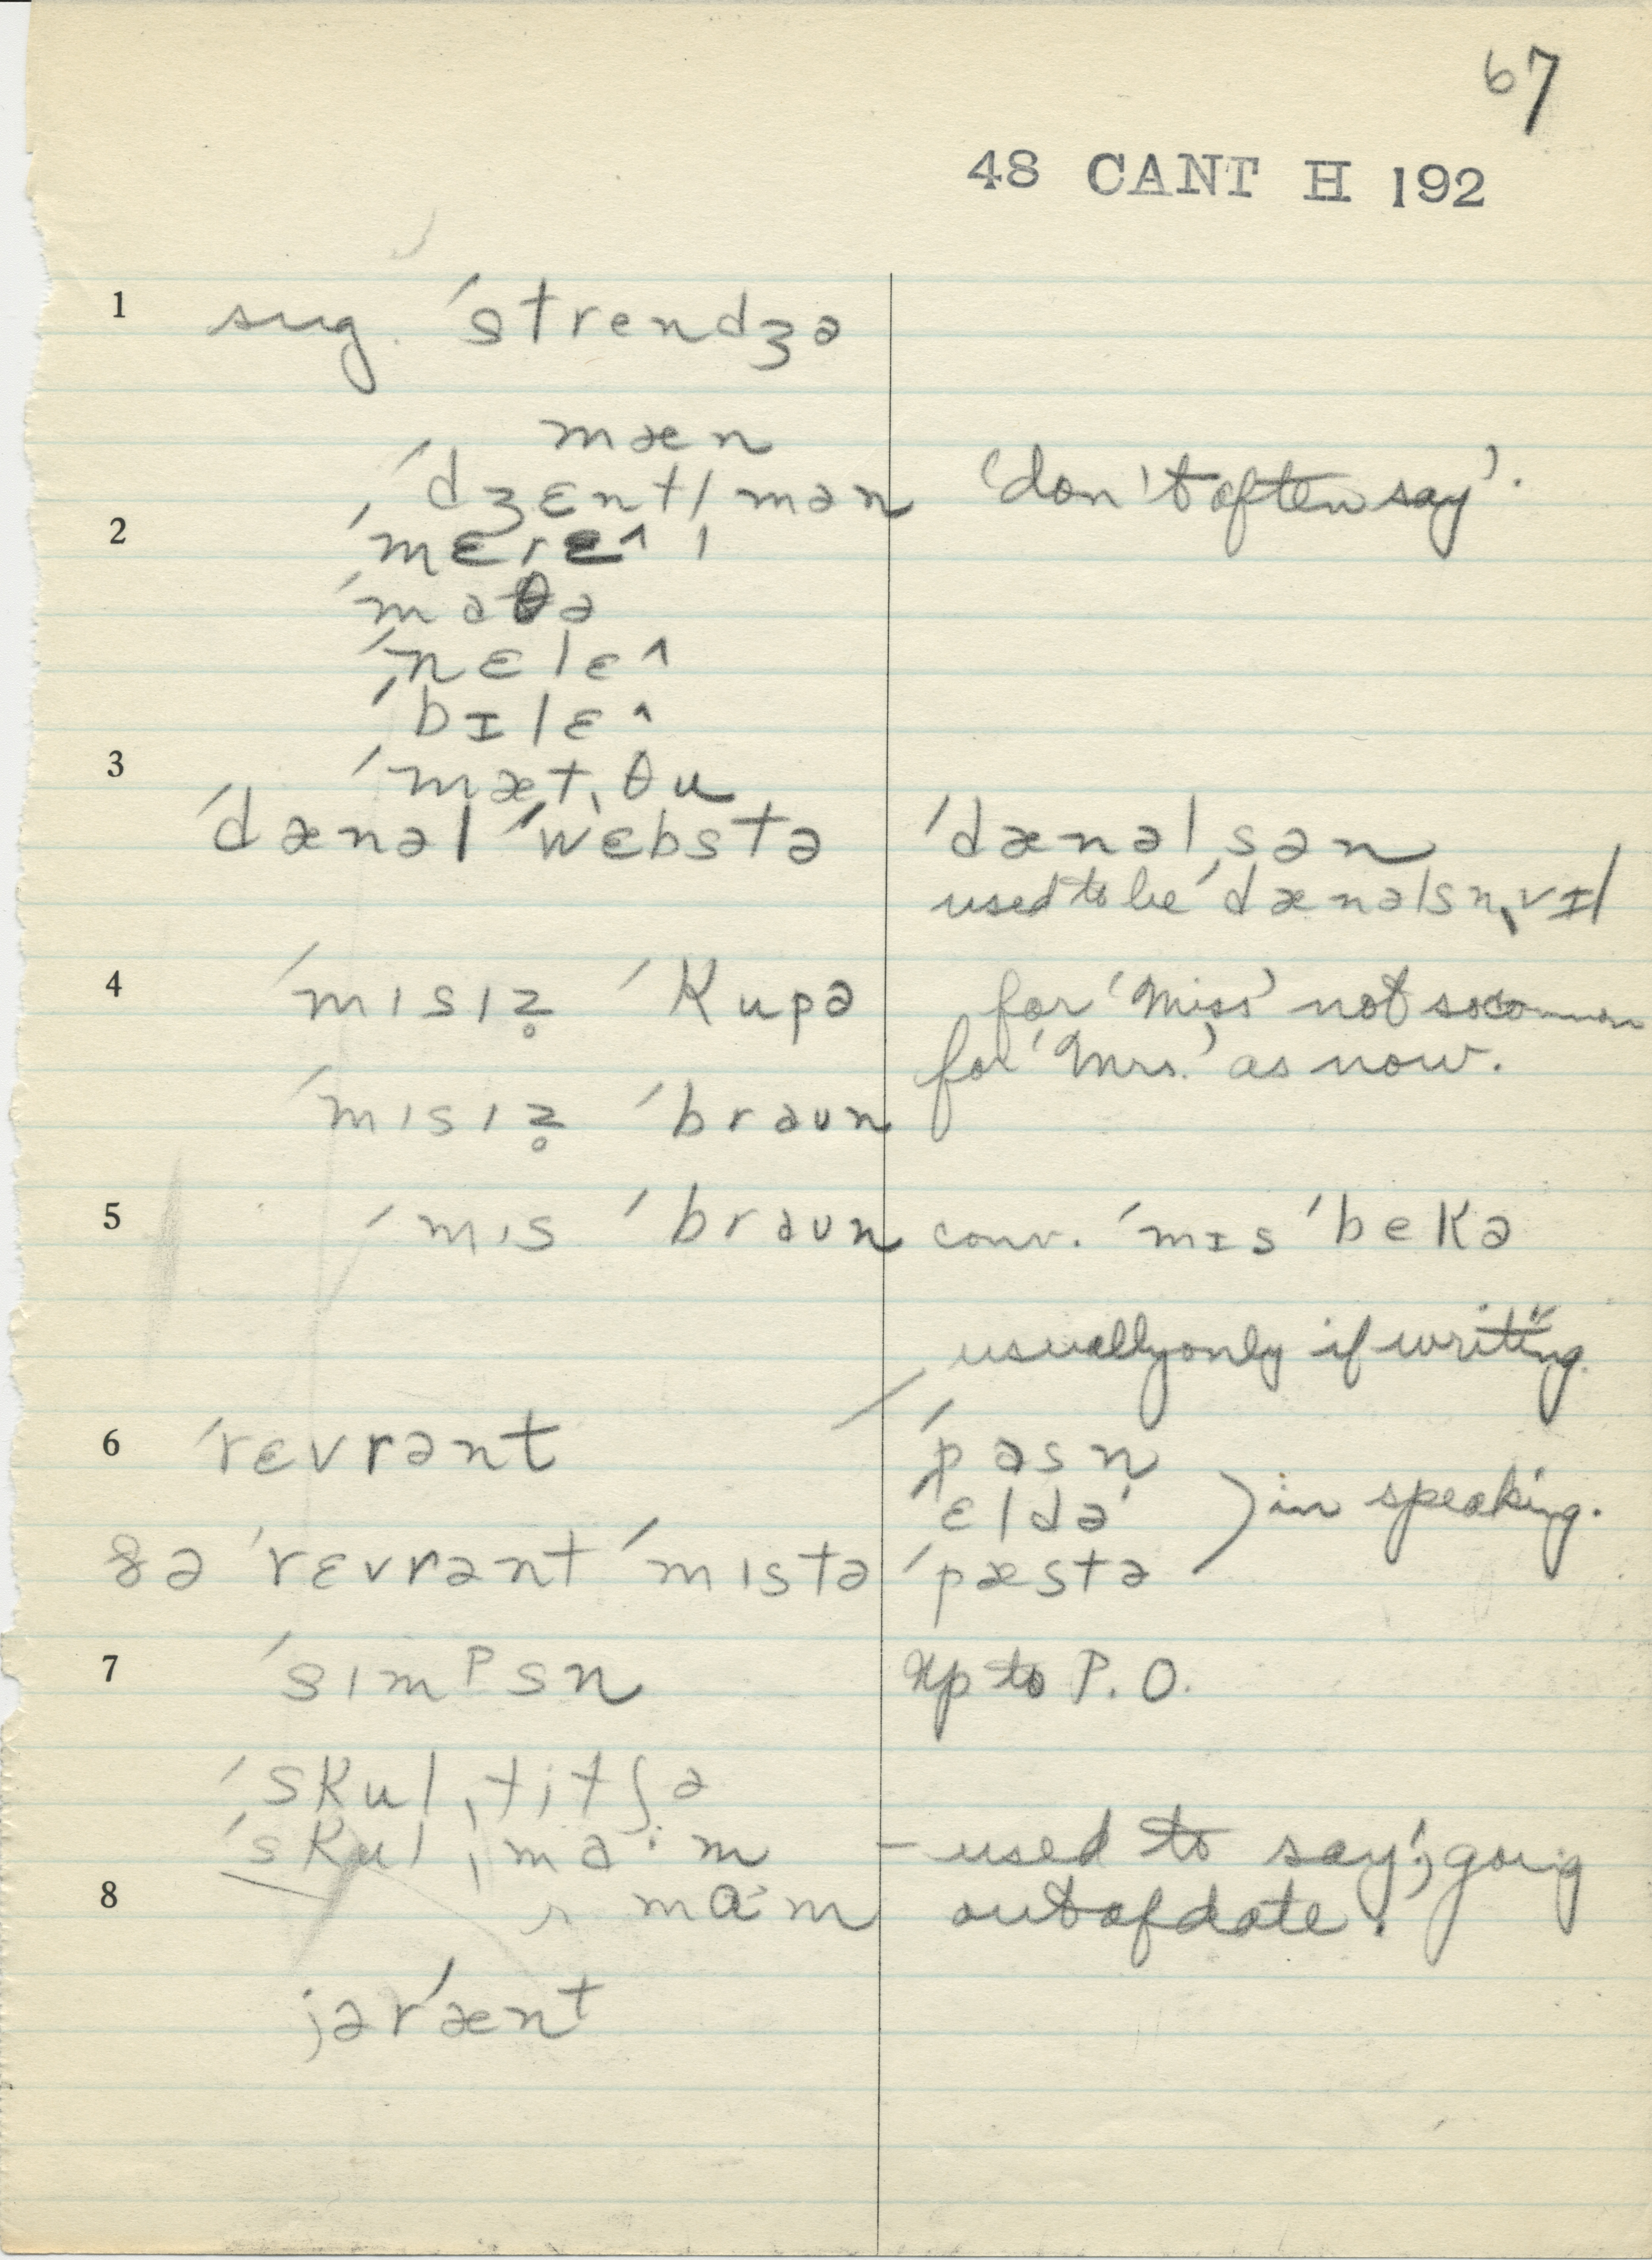 67
48 CANT H 192
1 sug. ˈstrendʒə
mæn
ˈdʒɛntlmən 'don't often say'.
2 ˈmɛrɛ^
ˈmaθə
ˈnɛlɛ^
ˈbɪlɛ^
3 ˈmætˌθu
ˈdænəlˈwɛbstə ˈdænəlˌsən
used to be ˈdænəlsnˌvɪl
4 ˈmɪsɪz̥ ˈkupə for 'Miss' not so common
for 'Mrs.' as now.
ˈmɪsɪz̥ ˈbraun
5 ˈmɪs ˈbraun conv. ˈmɪs ˈbekə
usually only if writing.
6 ˈrɛvrənt ˈpasn
ˈɛldə in speaking.
ðə ˈrɛvrənt ˈmɪstə ˈpæstə
7 ˈsɪmᵖsn up to P.O.
ˈskulˌtitʃə
ˈskulˌma·m – used to say'; going
8 mɑ·m out of date.
jərˈænt